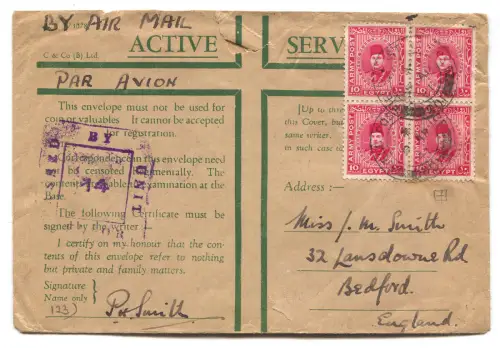 BY AIR MAIL
C & Co (B) Ltd
ACTIVE SERV
PAR AVION
This envelope must not be used for
or valuables It cannot be accepted
for registration.
Correspondence in this envelope need
be censored mentally. The
examination at the
Base.
The following Certificate must be
signed by the writer
I certify on my honour that the con-
tents of this envelope refer to nothing
but private and family matters.
Signature
Name only
(23)
P.H. Smith
BY
UNIT
14
[Up to thr
this Cover, but
same writer.
in such case to
Address :—
Miss J. M. Smith
32 Lansdowne Rd
Bedford.
England.
ARMY POST
10 EGYPT
ARMY POST
10 EGYPT
ARMY POST
10 EGYPT
ARMY POST
10 EGYPT